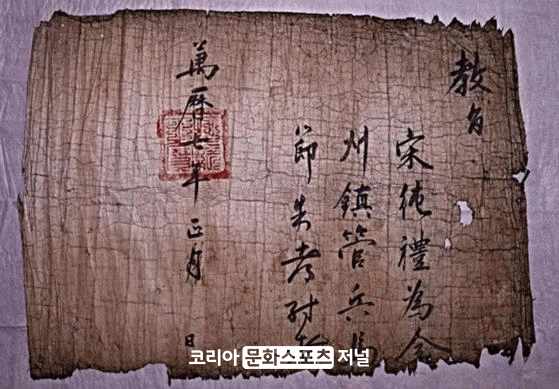 教旨
宋純禮為全
州鎮管兵
節
萬曆七年正月 日
코리아 문화스포츠 저널